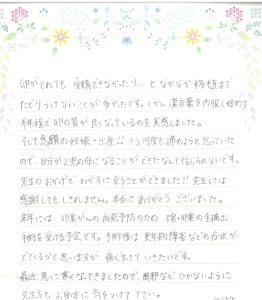 卵がとれても 受精できなかったり… と なかなか移植まで
たどりつけないことが多かったです。しかし漢方薬を内服し始めて
半年程で卵の質が良くなっているのを実感しました。
そして念願の妊娠・出産!! もう何度も諦めようと思っていた
ので、自分が2児の母になることができたなんて信じられないです。
先生のおかげで わが子に会うことができました!! 先生には
感謝してもしきれません。本当に ありがとう ございました。
来年には 卵巣がんの再発予防のため 子宮・卵巣の全摘出
手術を受ける予定です。手術後は 更年期障害などの症状が
でてくるかと思いますが 強く生きていきたいです。
最近 急に寒くなってきましたので、風邪などひかないように
先生方も お身体に 気をつけて下さい。